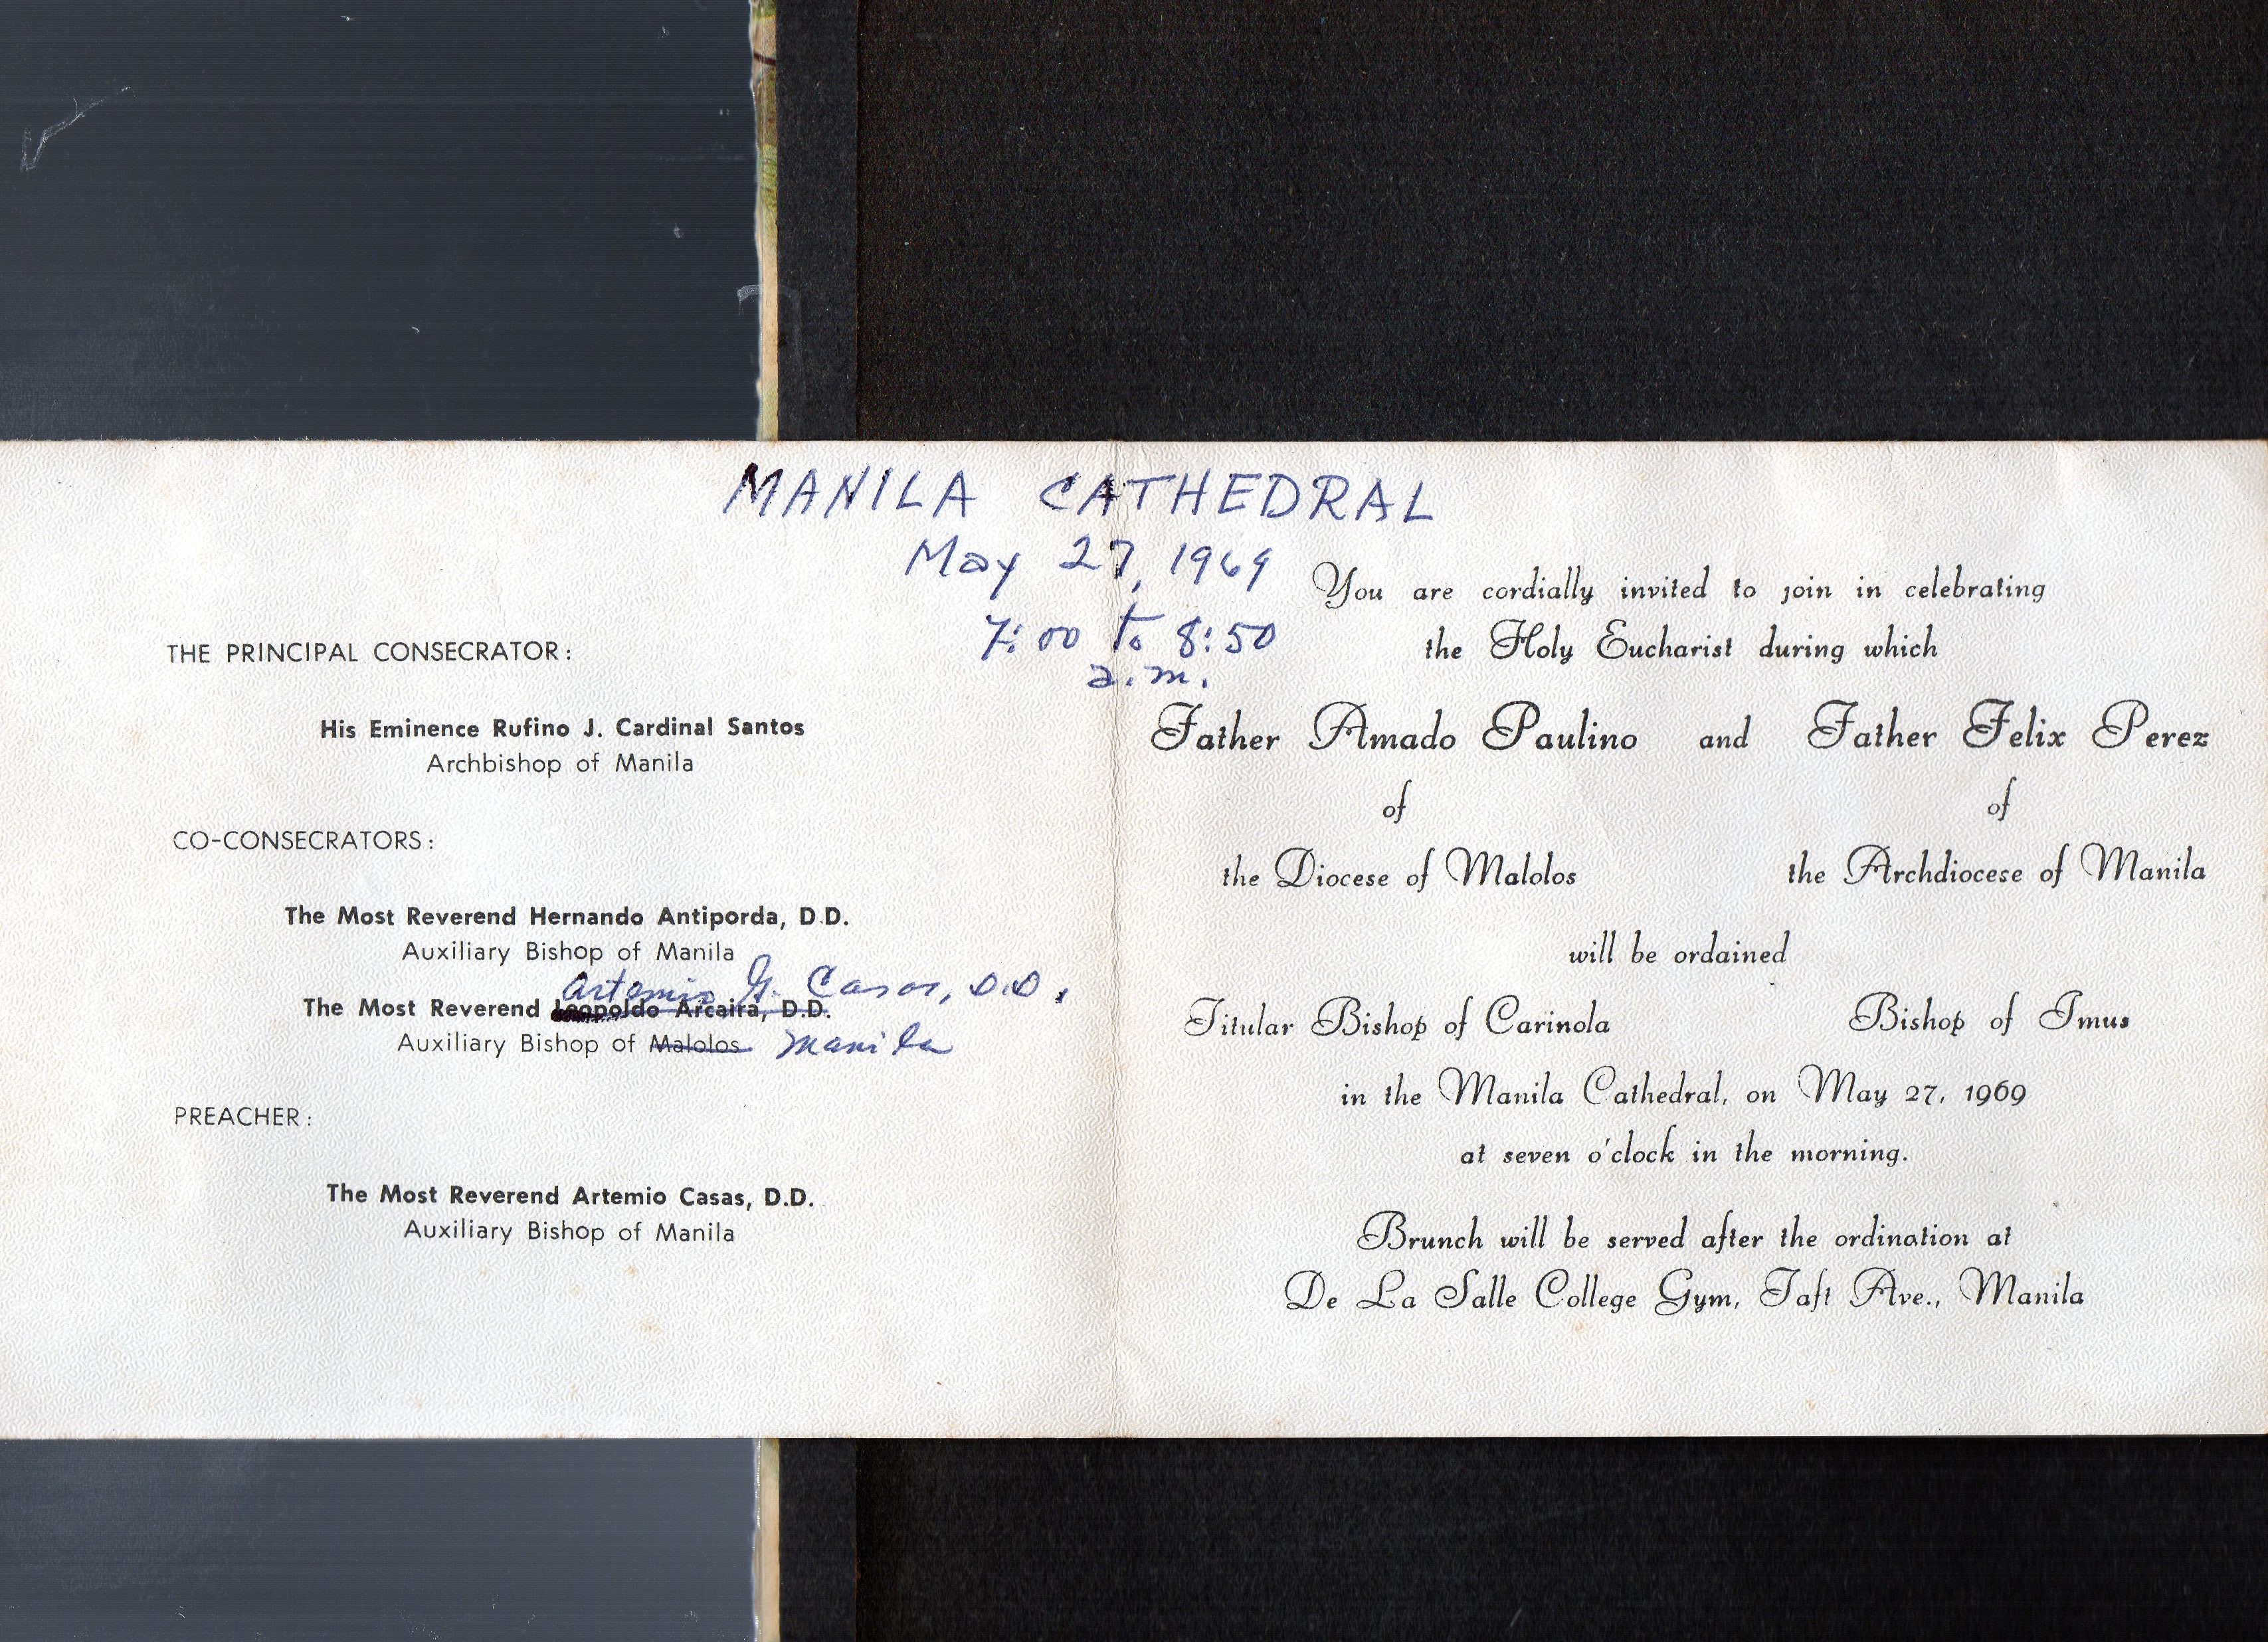 MANILA CATHEDRAL
May 27, 1969
7:00 to 8:50
a.m.
THE PRINCIPAL CONSECRATOR:
His Eminence Rufino J. Cardinal Santos
Archbishop of Manila
CO-CONSECRATORS:
The Most Reverend Hernando Antiporda, D.D.
Auxiliary Bishop of Manila
Artemio G. Casas, D.D.
The Most Reverend Leopoldo Arcaira, D.D.
Auxiliary Bishop of Malolos Manila
PREACHER:
The Most Reverend Artemio Casas, D.D.
Auxiliary Bishop of Manila
You are cordially invited to join in celebrating
the Holy Eucharist during which
Father Amado Paulino and Father Felix Perez
of of
the Diocese of Malolos the Archdiocese of Manila
will be ordained
Titular Bishop of Carinola Bishop of Imus
in the Manila Cathedral, on May 27, 1969
at seven o'clock in the morning.
Brunch will be served after the ordination at
De La Salle College Gym, Taft Ave., Manila